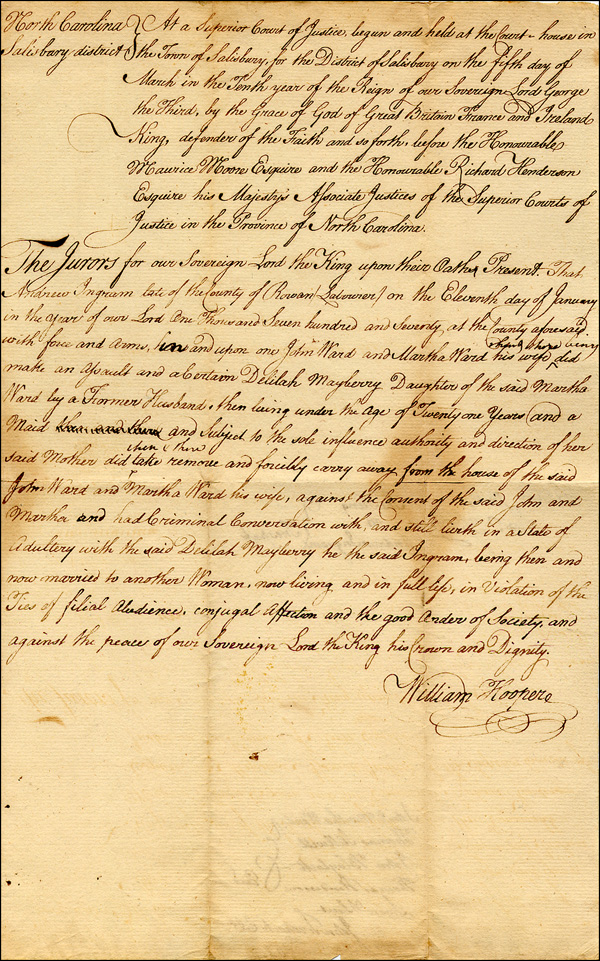 North Carolina } At a Superior Court of Justice, begun and held at the Court-house in
Salisbury district } the Town of Salisbury, for the District of Salisbury on the fifth day of
March in the Tenth year of the Reign of our Sovereign Lord George
the Third, by the Grace of God of Great Britain France and Ireland
King, defender of the Faith and so forth, before the Honourable
Maurice Moore Esquire and the Honourable Richard Henderson
Esquire his Majesty's Associate Justices of the Superior Courts of
Justice in the Province of North Carolina.
The Jurors for our Sovereign Lord the King upon their Oaths Present That
Andrew Ingram late of the County of Rowan (Labourer) on the Eleventh day of January
in the Year of our Lord One Thousand Seven hundred and Seventy, at the County aforesaid
with force and Arms, in and upon one John Ward and Martha Ward his wife did
make an Assault and a Certain Delilah Mayberry Daughter of the said Martha
Ward by a Former Husband, then living under the Age of Twenty one Years (and a
Maid and Subject to the sole influence authority and direction of her
then & there
said Mother did take remove and forcibly carry away from the house of the said
John Ward and Martha Ward his wife, against the Consent of the said John and
Martha and had Criminal Conversation with, and still liveth in a State of
Adultery with the said Delilah Mayberry he the said Ingram, being then and
now married to another Woman, now living and in full life, in Violation of the
Ties of filial Abudience, conjugal Affection and the good Order of Society, and
against the peace of our Sovereign Lord the King his Crown and Dignity.
William Hooper